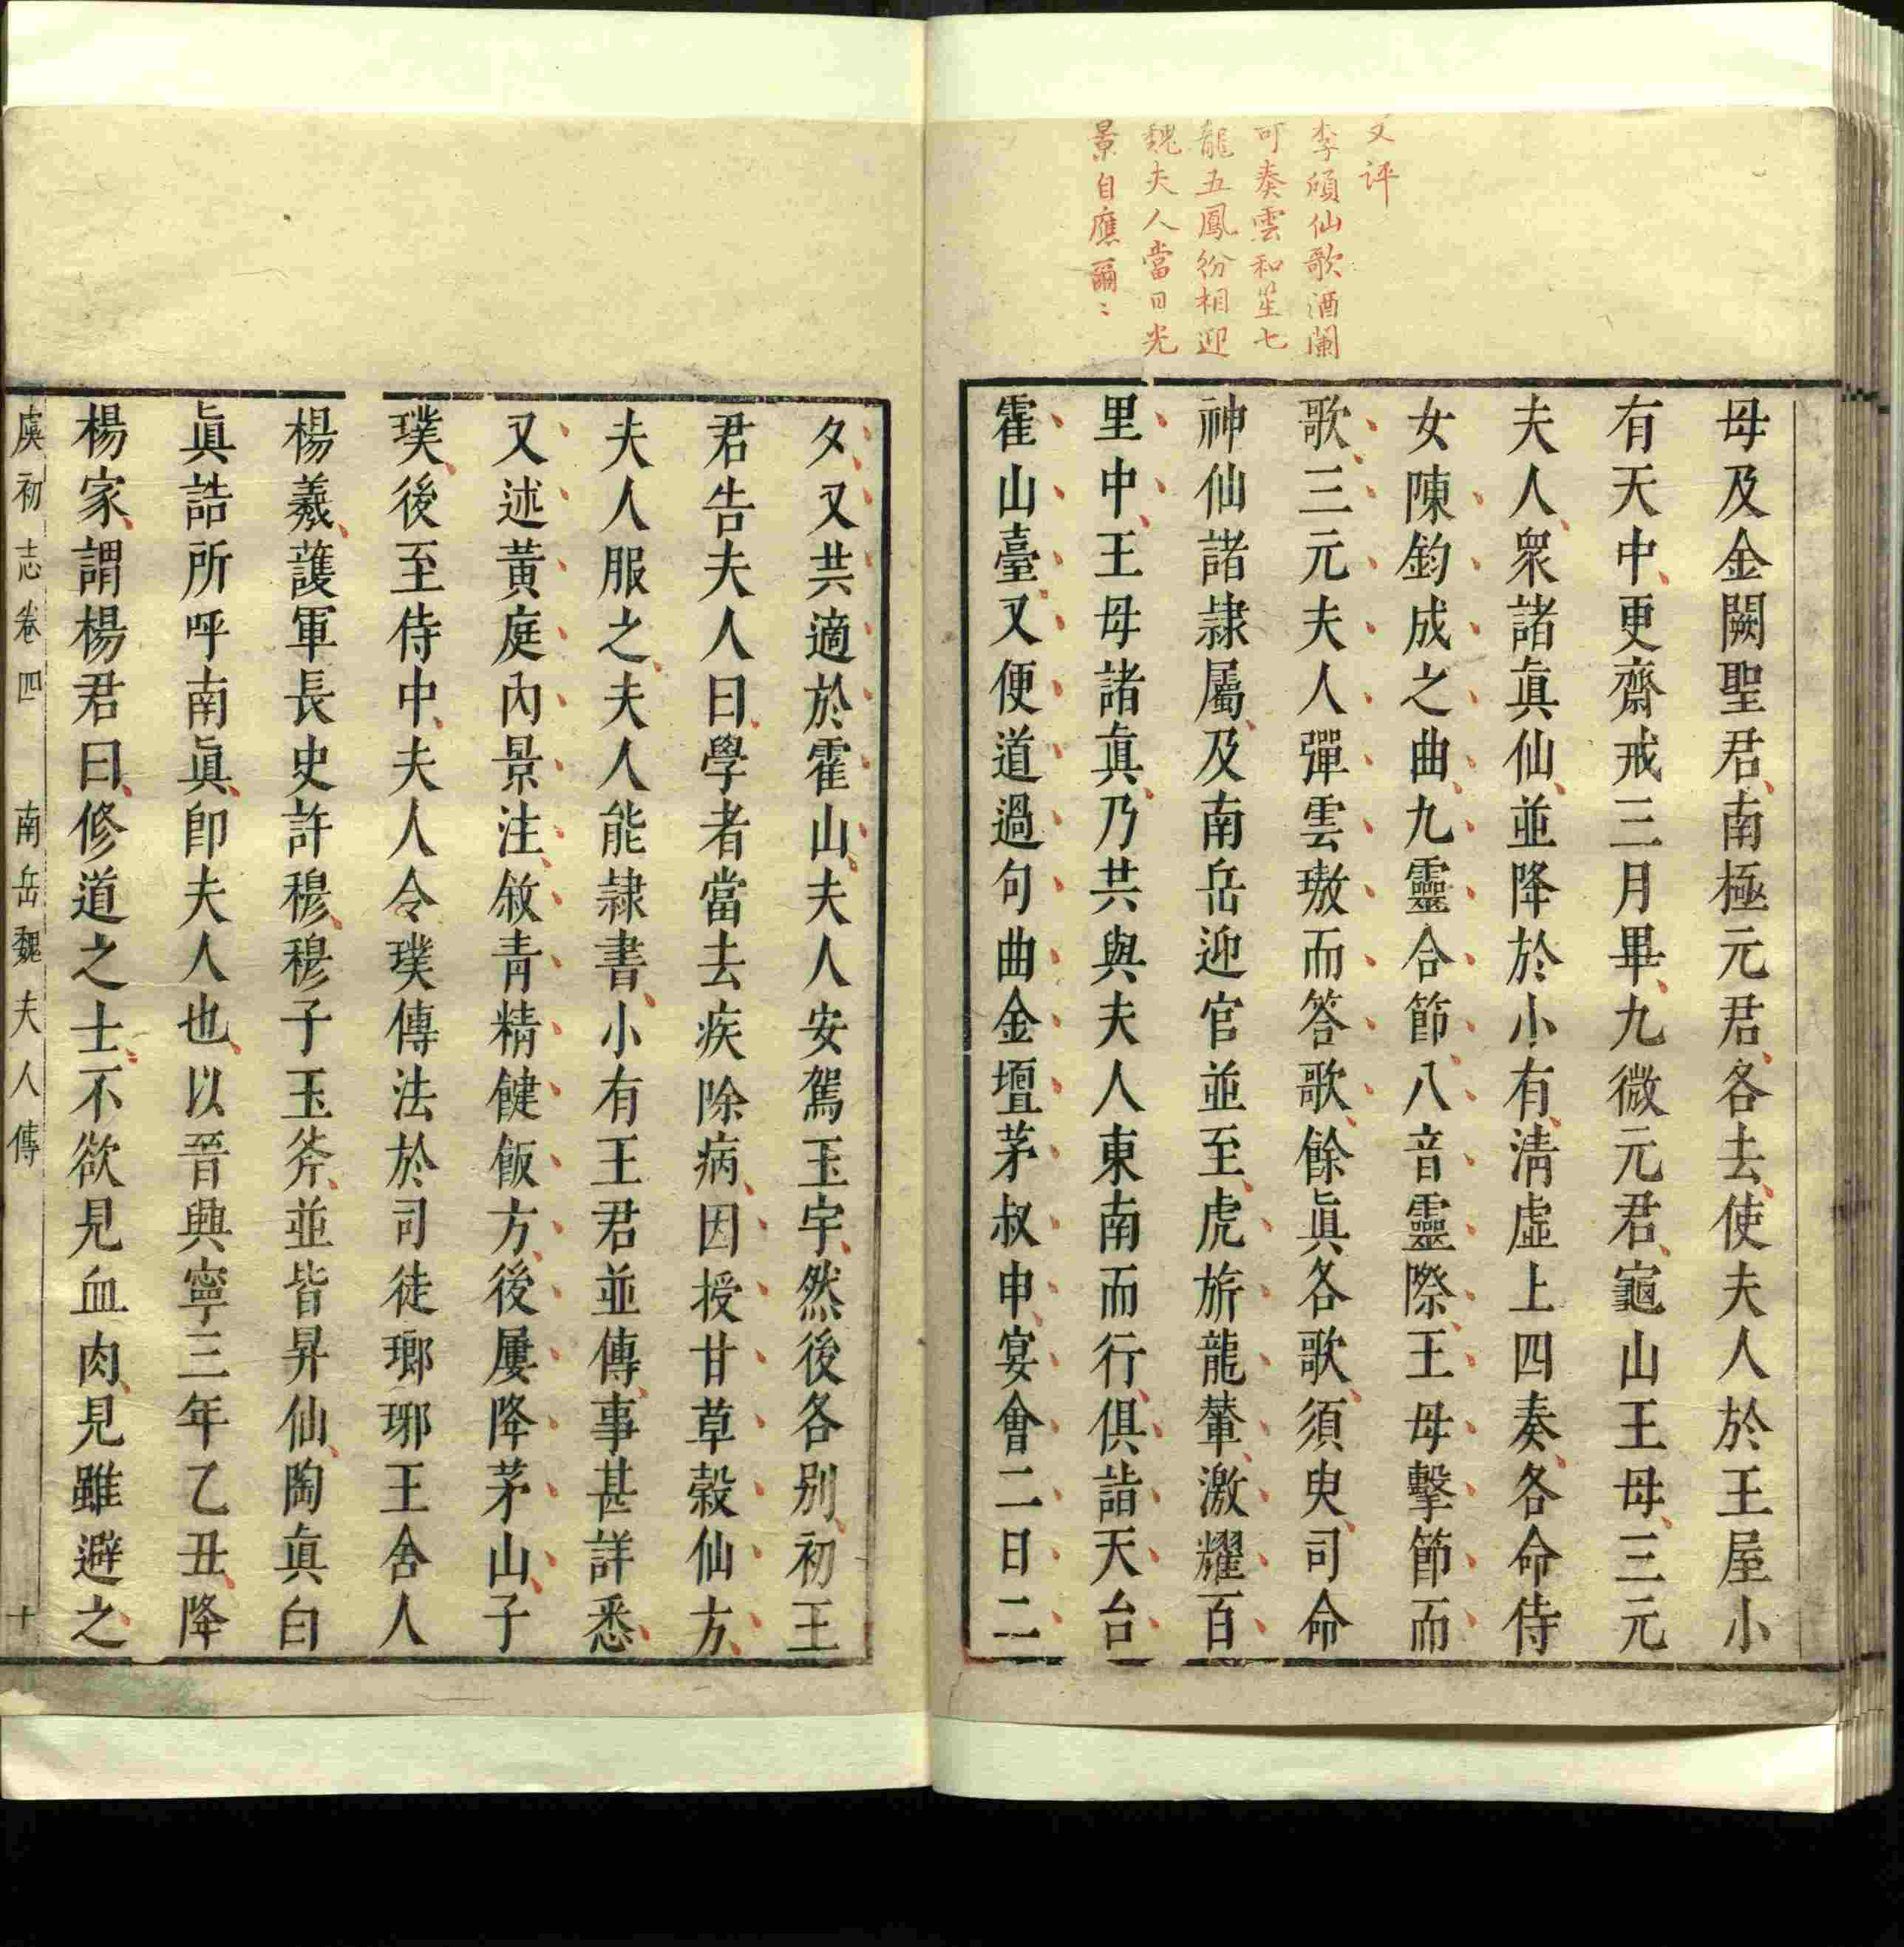 又評
李頎仙歌酒闌
可奏雲和笙七
龍五鳳紛相迎
魏夫人當日光
景自應爾〻
母及金闕聖君、南極元君、各去、使夫人於王屋小
有天中、更齋戒三月畢、九微元君、龜山王母、三元
夫人、衆諸眞仙、並降於小有、清虛上四奏、各命侍
女陳鈞成之曲、九靈合節、八音靈際、王母擊節而
歌、三元夫人彈雲璈而答歌、餘眞各歌、須臾、司命
神仙諸隷屬、及南岳迎官並至、虎旂龍輦、激耀百
里中、王母諸眞、乃共與夫人東南而行、俱詣天台
霍山臺、又便道過句曲金壇茅叔申、宴會二日二
夕、又共適於霍山、夫人安駕玉宇、然後各別、初王
君告夫人曰、學者當去疾除病、因授甘草穀仙方、
夫人服之、夫人能隷書、小有王君並傳、事甚詳悉、
又述黃庭內景注、敘青精䭈飯方、後屢降茅山、子
璞、後至侍中、夫人令璞傳法於司徒瑯琊王舍人
楊羲、護軍長史許穆、穆子玉斧、並皆昇仙、陶眞白
眞誥所呼南眞、卽夫人也、以晉興寧三年乙丑、降
楊家、謂楊君曰、修道之士、不欲見血肉、見雖避之、
虞初志卷四 南岳魏夫人傳 十